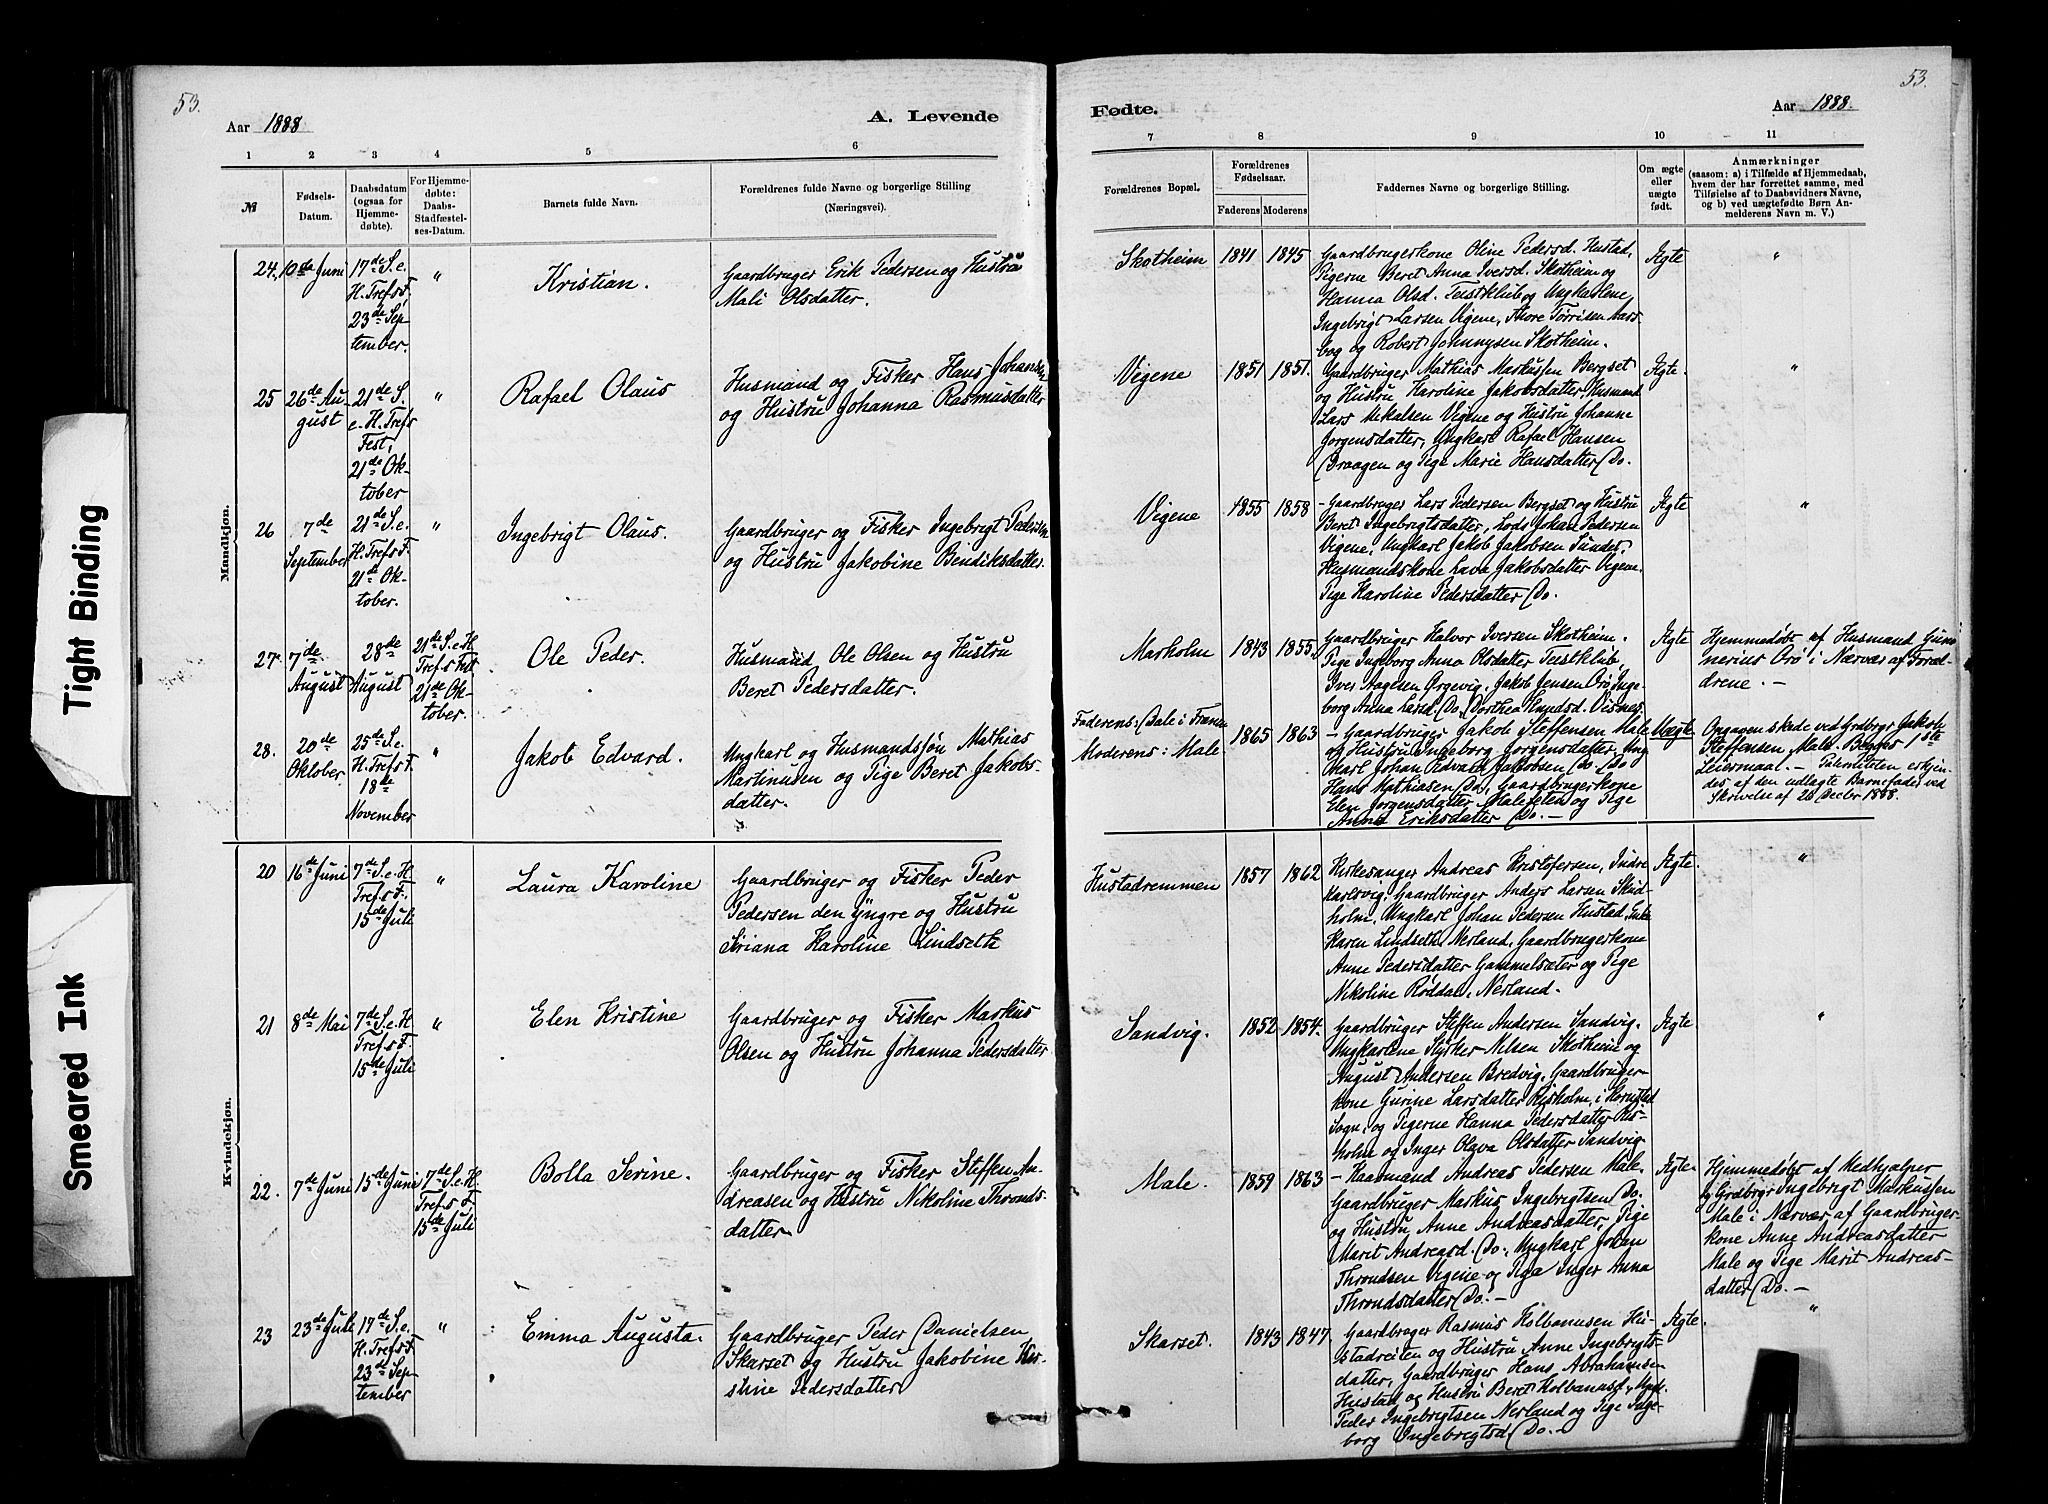 53.
Aar 1888
A. Levende
1 2 3 4 5 6
№
Fødsels-
Datum.
Daabsdatum
(ogsaa for
Hjemme-
døbte).
For Hjemme-
døbte:
Daabs-
Stadfæstel-
ses-Datum.
Barnets fulde Navn.
Forældrenes fulde Navne og borgerlige Stilling
(Næringsvei).
Mandkjøn.
24. 10de Juni
17de S. e.
H. Tref. s F.
23de Sep
tember.
"
Kristian.
Gaardbruger Erik Pedersen og Hustru
Mali Olsdatter.
25 26de Au
gust
21de S.
e. H. Tref s
Fest,
21de Ok-
tober
"
Rafael Olaus
Husmand og Fisker Hans Johansen
og Hustru Johanna Rasmusdatter
26 7de
September
21de S. e.
H. Tref s F.
21de Ok-
tober.
"
Ingebrigt Olaus.
Gaardbruger og Fisker Ingebrigt Pedersen
og Hustru Jakobine Bendiksdatter.
27. 7de
August
28de
August
21de S. e H.
Tref. s Fest
21de Ok-
tober.
Ole Peder.
Husmand Ole Olsen og Hustru
Beret Pedersdatter.
28. 20de
Oktober.
25de S. e.
H. Tref s F.
18de
November
"
Jakob Edvard.
Ungkarl og Husmandssøn Mathias
Martinusen og Pige Beret Jakobs-
datter.
Kvindekjøn.
20 16de Juni
7de S. e. H
Tref. s F.
15de Juli
"
Laura Karoline
Gaardbruger og Fisker Peder
Pedersen den yngre og Hustru
Siriana Karoline Lindseth
21 8de Mai
7de S. e. H
Tref. s F.
15de Juli
"
Elen Kristine
Gaardbruger og Fisker Markus
Olsen og Hustru Johanna Pedersdatter
22. 7de Juni
15de Juni
7de S. e. H.
Tref. s F.
15de Juli
Bolla Serine.
Gaardbruger og Fisker Steffen An-
dreasen og Hustru Nikoline Thronds-
datter
23 23de Juli
17de S. e.
H. Tref s F
23de Sep-
tember
"
Emma Augusta.
Gaardbruger Peder Danielsen
Skarset og Hustru Jakobine Kir-
stine Pedersdatter
53.
Fødte.
Aar 1888.
7 8 9 10 11
Forældrenes Bopæl.
Forældrenes
Fødselsaar.
Faderens Moderens
Faddernes Navne og borgerlige Stilling.
Om ægte
eller
uægte
født.
Anmærkninger
(saasom: a) i Tilfælde af Hjemmedaab,
hvem der har forrettet samme, med
Tilføielse af to Daabsvidners Navne,
og b) ved uægtefødte Børn An-
melderens Navn m. V.)
Skotheim 1841 1845
Gaardbrugerkone Oline Pedersd. Hustad,
Pigerne Beret Anna Iversd. Skotheim og
Hanna Olsd. Teistklub og Ungkarlene
Ingebrigt Larsen Vigene, Thore Torrisen
bog og Robert Johnnysen Skotheim.
Ægte
"
Vigene 1851 1851.
Gaardbruger Mathias Markussen Bergset
og Hustru Karoline Jakobsdatter, Husmand
Lars Mikalsen Vigene og Hustru Johanne
Jorgensdatter, Ungkarl Rafael Hansen
Braagen og Pige Marie Hansdatter Do.
Ægte.
"
Vigene 1855 1858
– Gaardbruger Lars Pedersen Bergset og Hustru
Beret Ingebrigtsdatter, Lods Johan Pedersen
Vigene, Ungkarl Jakob Jakobsen Sundet,
Husmandskone Lava Jakobsdatter Vigene.
Pige Karoline Pedersdatter Do.
Ægte
"
Marholm 1843 1855.
Gaardbruger Halvor Iversen Skotheim.
Pige Ingeborg Anna Olsdatter Teistklub,
Iver Aagesen Ørgevig, Jakob Jensen Orø, Inge-
borg Anna Larsd. Do, Dorthea Knudsd. Visnes.
Ægte
Hjemmedøbt af Husmand Gun-
nerius Orø i Nærvær af Foræl-
drene. –
Faderens: Bale i Fræna
Moderens: Male
1865 1863
– Gaardbruger Jakob Steffensen Male
og Hustru Ingeborg Jorgensdatter, Ung
karl Johan Edvard Jakobsen Do. Do
Hans Mathiasen Do, Gaardbrugerkone
Elen Jorgensdatter Malefeten og Pige
Anna Eriksdatter Do. –
Uægte
Opgaven skede ved Grdbrgr Jakob
Steffensen Male. Begges 1ste
Leiermaal. – Paterniteten erkjen-
des af den udlagte Barnefader ved
Skrivelse af 26 Decbr 1888.
Hustadremmen 1857 1862
Kirkesanger Andreas Kristofersen, Indre
Karlsvig, Gaardbruger Anders Larsen Skid-
holm, Ungkarl Johan Pedersen Hustad, Enke
Karen Lindseth Nerland, Gaardbrugerkone
Anne Pedersdatter Gammelsæter og Pige
Nikoline Røddal, Nerland.
Ægte.
"
Sandvig. 1852 1854.
Gaardbruger Steffen Andersen Sandvig.
Ungkarlene Styrker Nilsen Skotheim og
August Andersen Bredvig, Gaardbruger-
kone Gurine Larsdatter Risholm, i Kornstad
Sogn, og Pigerne Hanna Pedersdatter Ris-
holm og Inger Olava Olsdatter Sandvig
Ægte
"
Male. 1859 1863
– Kaarmand Andreas Pedersen Male.
Gaardbruger Markus Ingebrigtsen Do.
og Hustru Anne Andreasdatter, Pige
Marit Andreasd. Do, Ungkarl Johan
Throndsen Vigene og Pige Inger Anna
Throndsdatter Do. –
Ægte
Hjemmedøbt af Medhjælper
og Grdbrgr Ingebrigt Markussen
Male i Nærvær af Gaardbruger-
kone Anne Andreasdatter
Male og Pige Marit Andreas-
datter Do. –
Skarset. 1843 1847.
Gaardbruger Rasmus Kolbanusen Hu-
stadreiten og Hustru Anne Ingebrigts-
datter, Gaardbruger Hans Abrahamsen
Hustad og Hustru Beret Kolbanusd, Ungk.
Peder Ingebrigtsen Nerland og Pige Inge-
borg Ingebrigtsd Do. –
Ægte.
"
Tight Binding
Smeared Ink